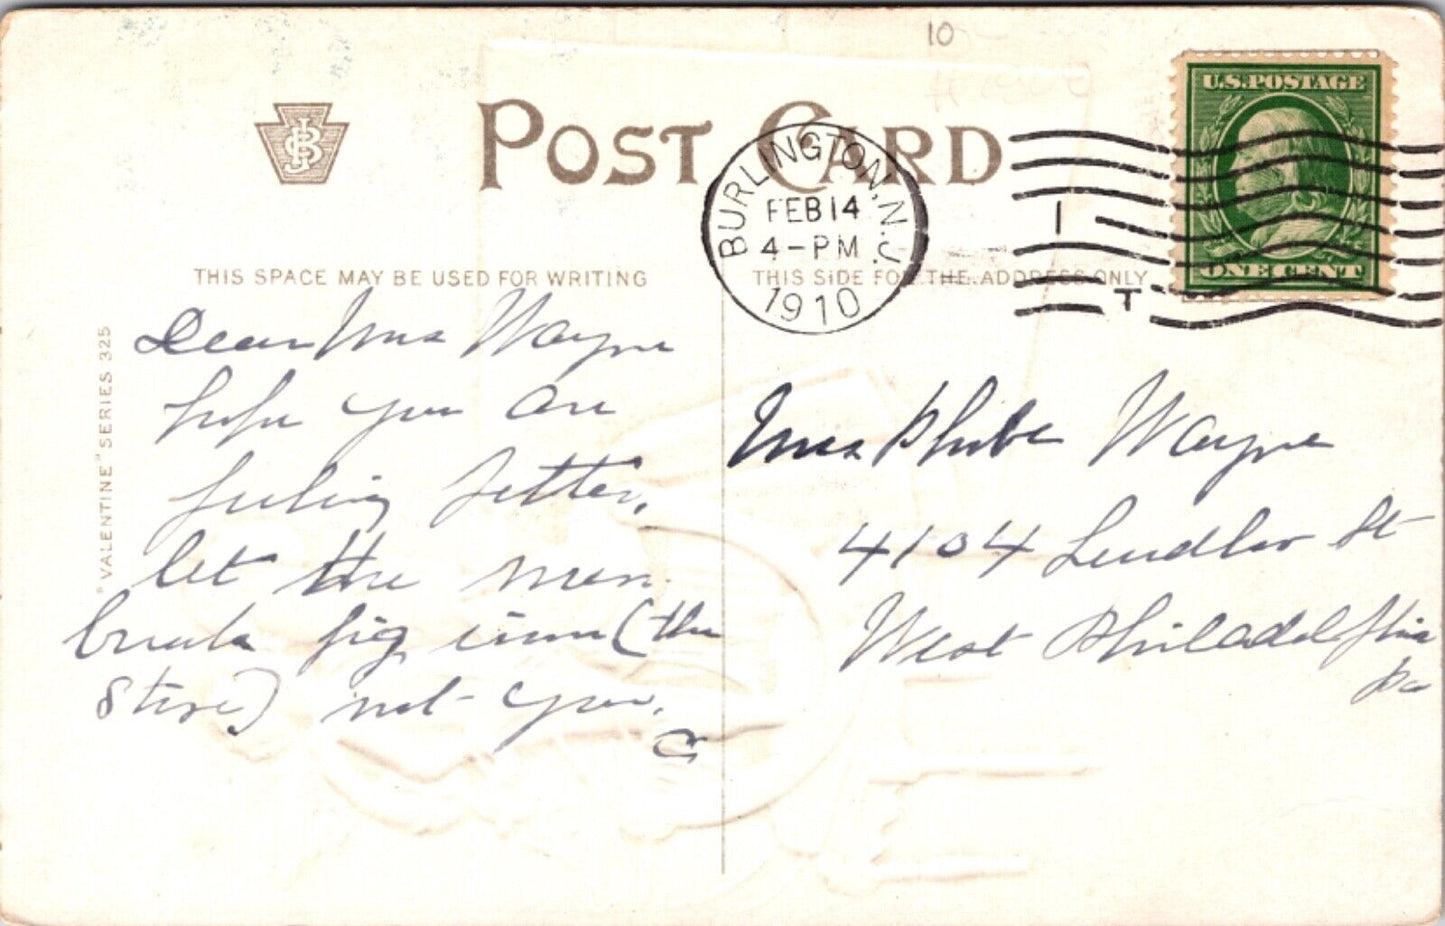 10
POST CARD
JBS
U.S. POSTAGE
ONE CENT
BURLINGTON, N.J.
FEB 14
4-PM
1910
I
T
THIS SPACE MAY BE USED FOR WRITING
THIS SIDE FOR THE ADDRESS ONLY
"VALENTINE" SERIES 325
Dear Mrs Wayne
hope you are
feeling better.
let the men
break fig (the
Store) not you.
Mrs Phebe Wayne
4104 St
West Philadelphia
Pa